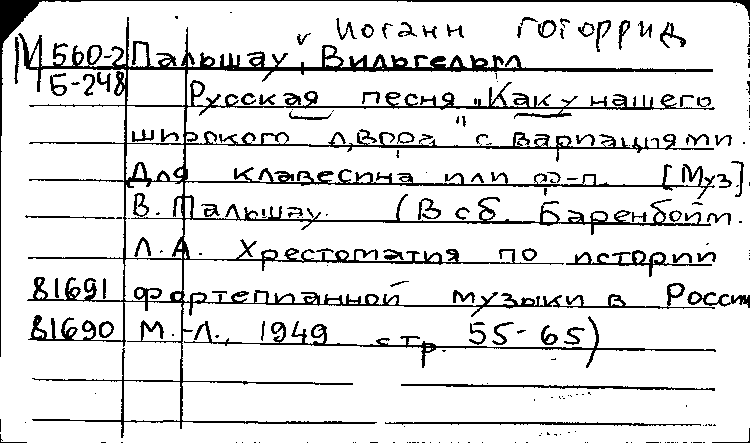 Иоганн Готоррид
М 560-2 Пальшау, Вильгельм
Б-248 Русская песня „Как у нашего
широкого двора" с вариациями.
Для клавесина или ф-п. [Муз.]
В. Пальшау. (В сб. Баренбойм.
Л.А. Хрестоматия по истории
81691 фортепианной музыки в России
81690 М.-Л., 1949. стр. 55-65)